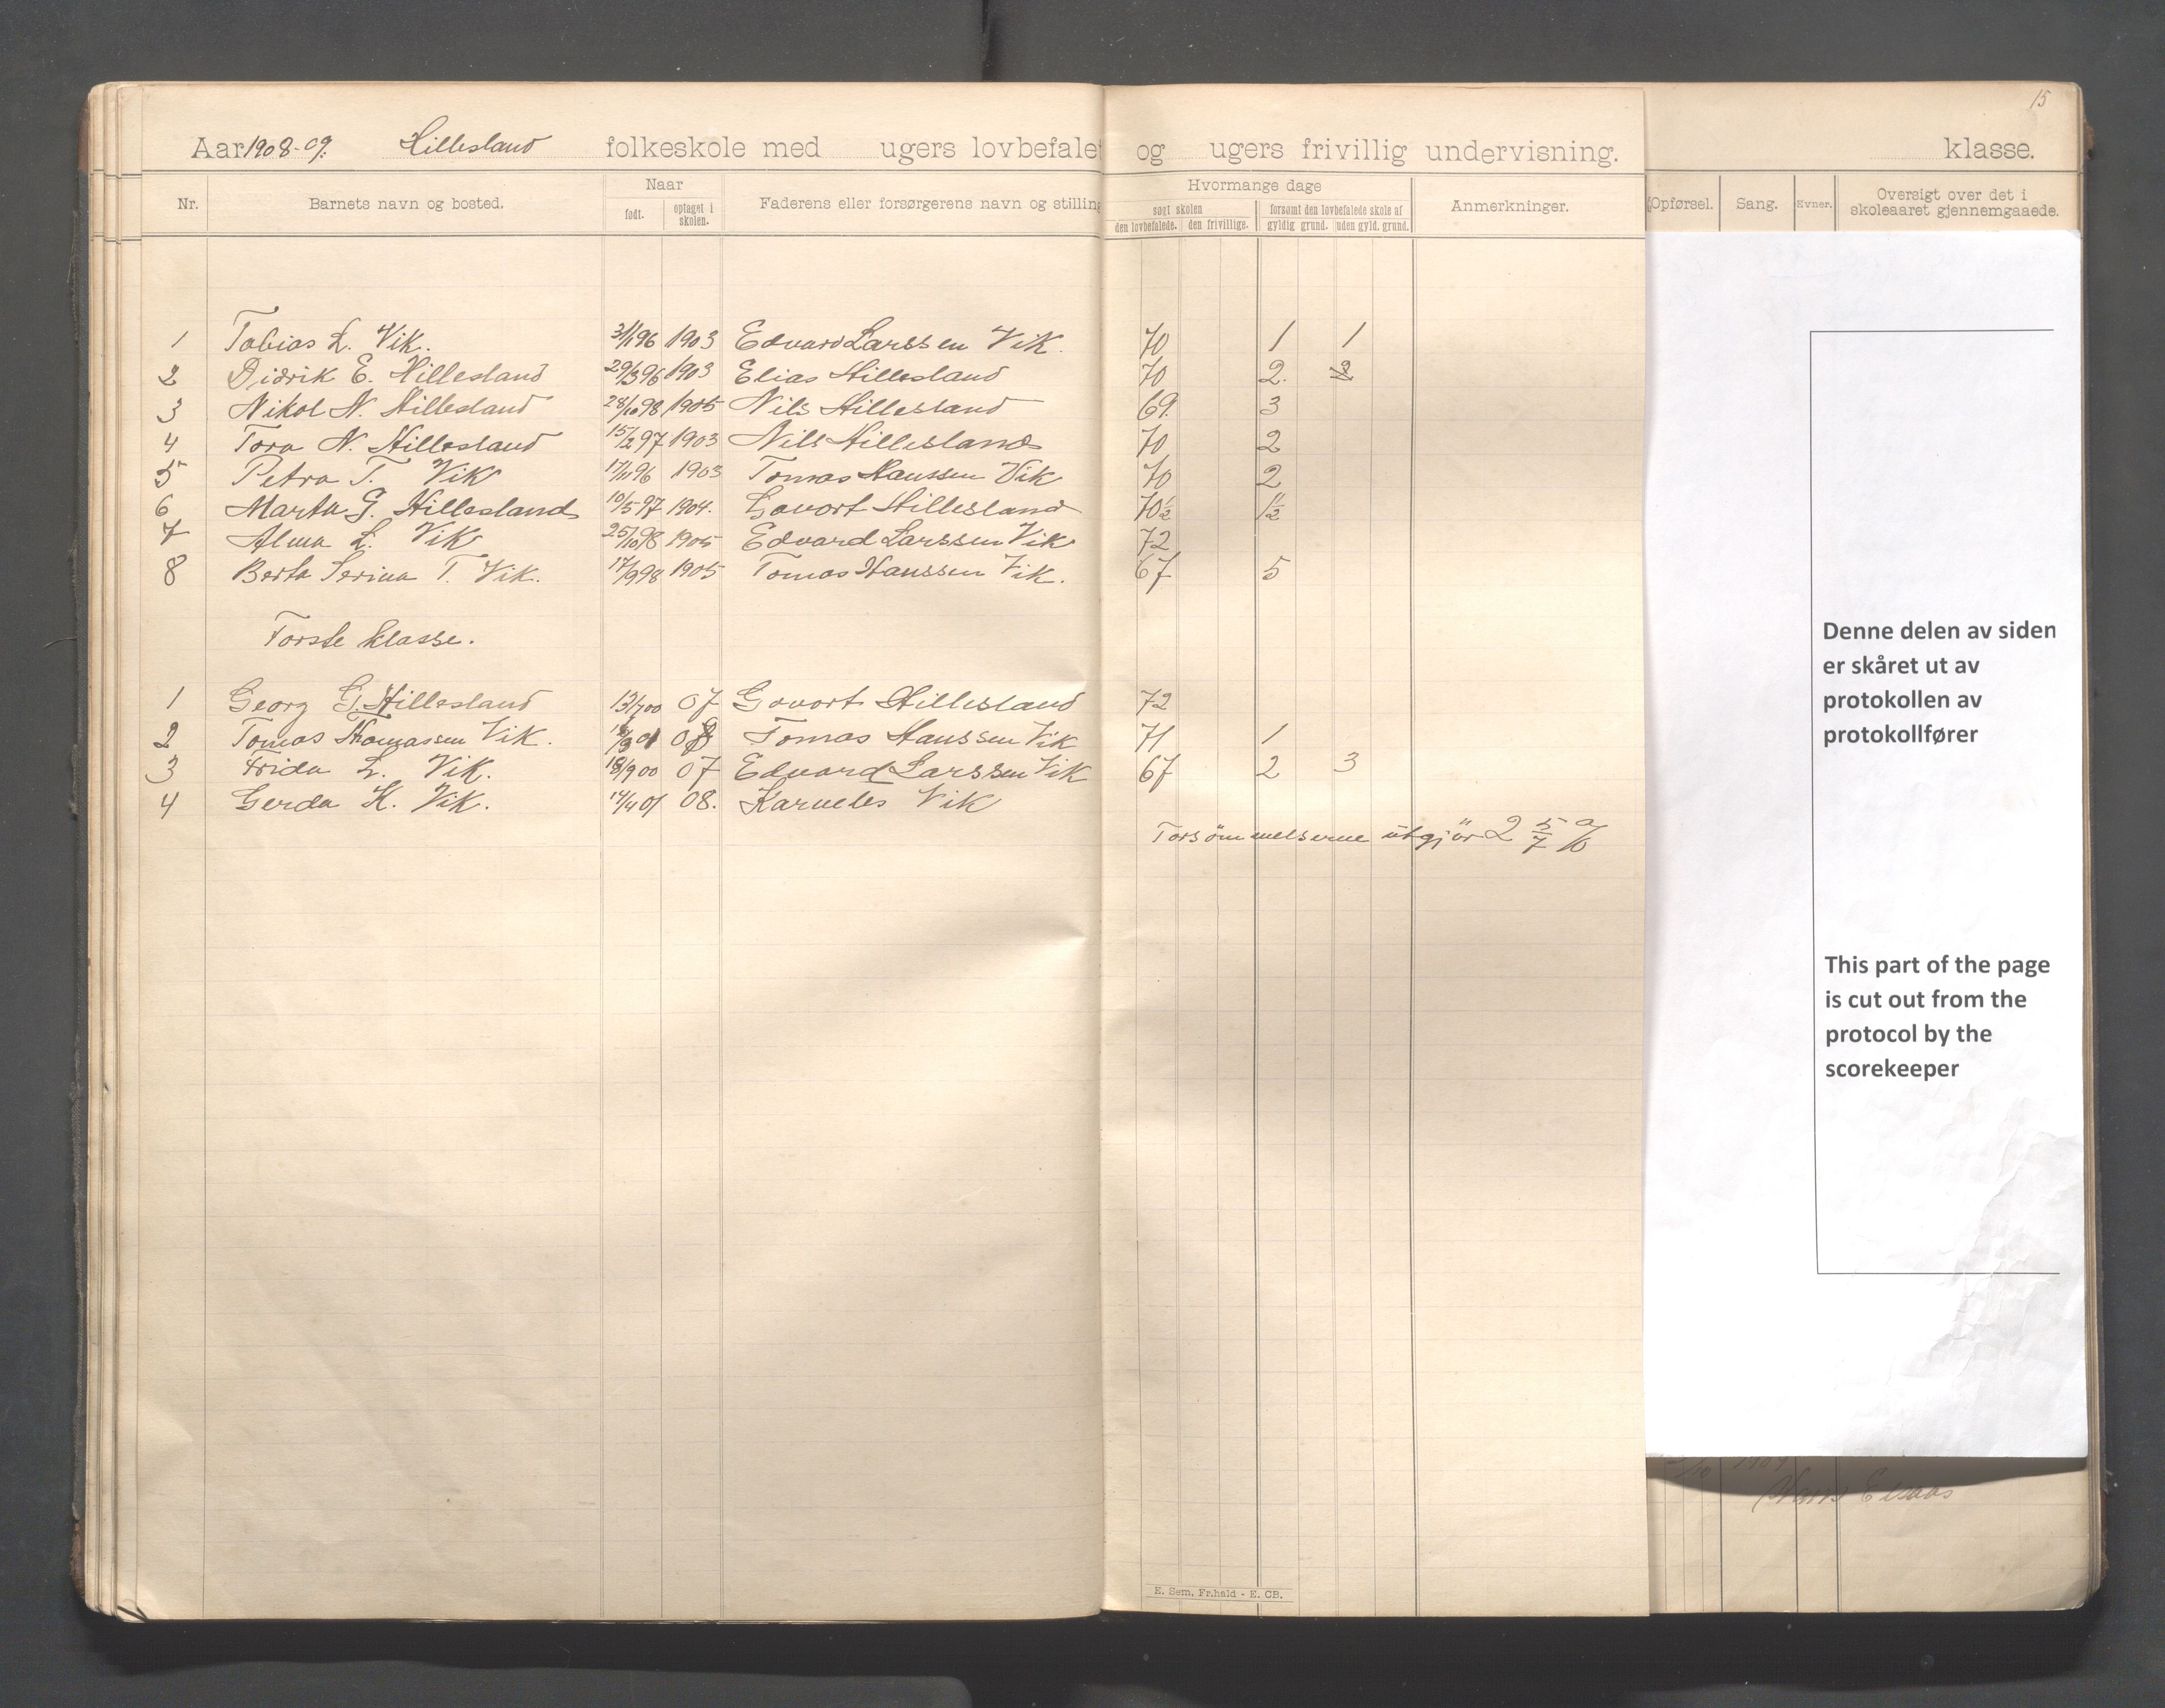 15
Aar 1908-09. Hillesland folkeskole med ugers lovbefalet og ugers frivillig undervisning. klasse.
Nr. Barnets navn og bosted. Naar født. optaget i skolen. Faderens eller forsørgerens navn og stilling Hvormange dage søgt skolen den lovbefalede. den frivillige. forsømt den lovbefalede skole af gyldig grund. uden gyld. grund. Anmerkninger. Opførsel. Sang. Evner. Oversigt over det i skoleaaret gjennemgaaede.
1 Tobias L. Vik. 31/1 96 1903 Edvard Larssen Vik. 70 1 1
2 Didrik E. Hillesland 29/3 96 1903 Elias Hillesland 70 2.
3 Nikol N. Hillesland 28/10 98 1905 Nils Hillesland 69. 3
4 Tora N. Hillesland 15/2 97 1903 Nils Hillesland 70 2
5 Petra T. Vik 17/11 96 1903 Tomas Hanssen Vik 70 2
6 Marta G. Hillesland 10/5 97 1904. Govort Hillesland 70½ 1½
7 Alma L. Vik 25/10 98 1905 Edvard Larssen Vik 72
8 Berta Serina T. Vik. 17/9 98 1905 Tomas Hanssen Vik. 67 5
Første klasse.
1 Georg G. Hillesland 13/7 00 07 Govort Hillesland 72
2 Tomas Thomassen Vik. /9 01 08 Tomas Hanssen Vik 71 1
3 Frida L. Vik. 18/9 00 07 Edvard Larssen Vik 67 2 3
4 Gerda K. Vik. 14/4 01 08. Karnelis Vik
Forsömmelserne utgjör 2 5/7 %
Denne delen av siden
er skåret ut av
protokollen av
protokollfører
This part of the page
is cut out from the
protocol by the
scorekeeper
/10 1909
E. Sem, Fr.hald - E. CB.